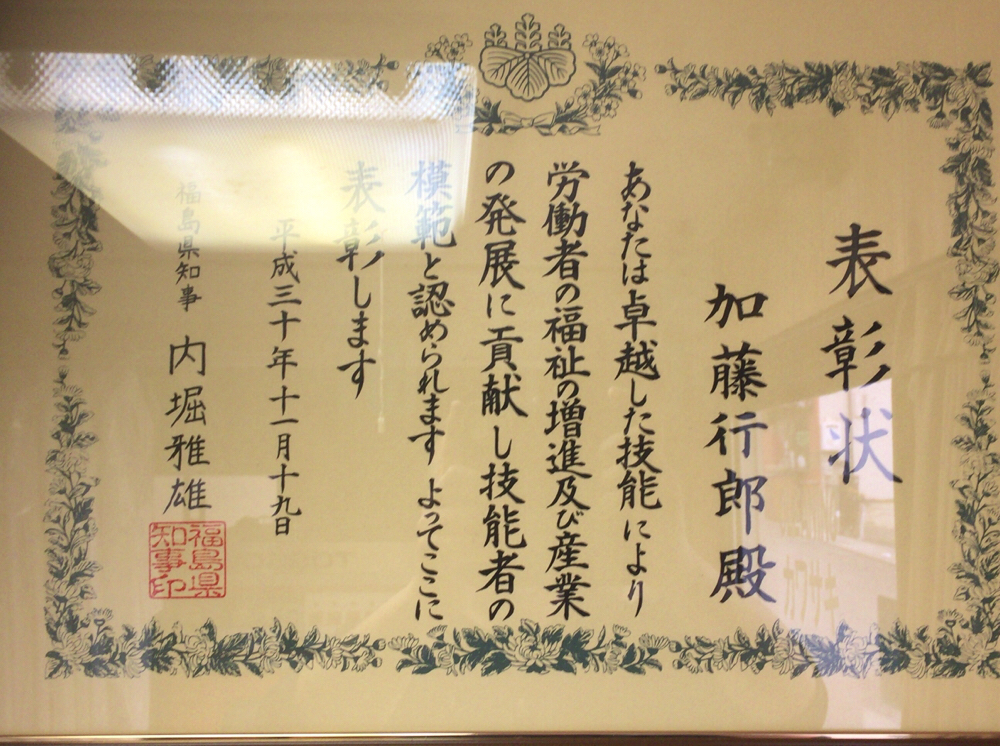 表彰状
加藤行郎殿
あなたは卓越した技能により
労働者の福祉の増進及び産業
の発展に貢献し技能者の
模範と認められます よってここに
表彰します
平成三十年十一月十九日
福島県知事 内堀雅雄
福島県
知事印